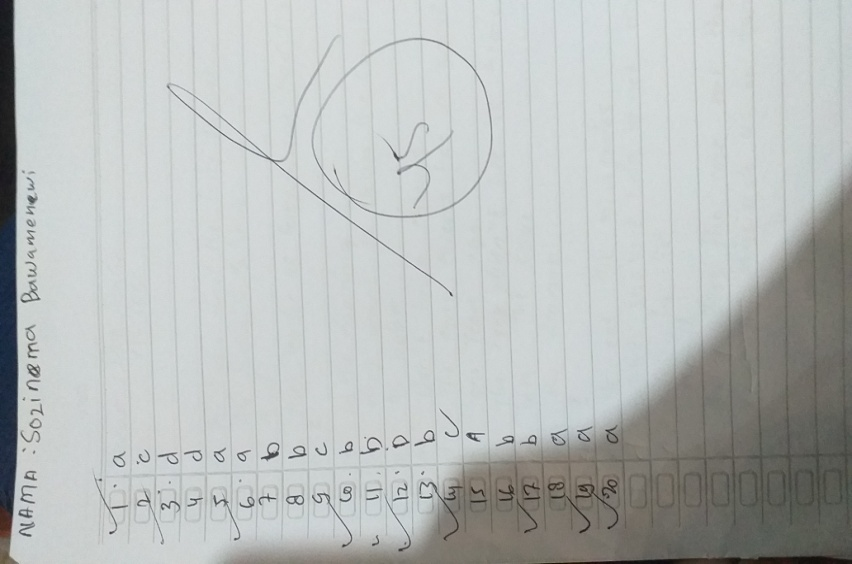 NAMA : Sozinema Bawamenewi
1. a
2. c
3. d
4 d
5 a
6. a
7 b
8 b
9 c
10. b
11. b
12. D
13. b
14 C
15 A
16 b
17 b
18 a
19 a
20 a